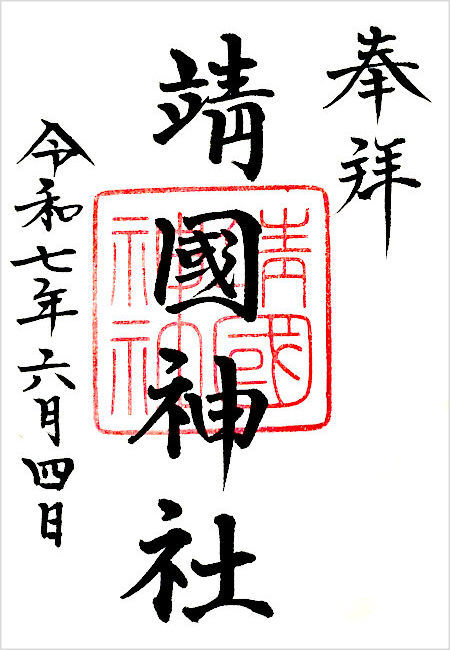 奉拝
靖國神社
靖國神社
令和七年六月四日